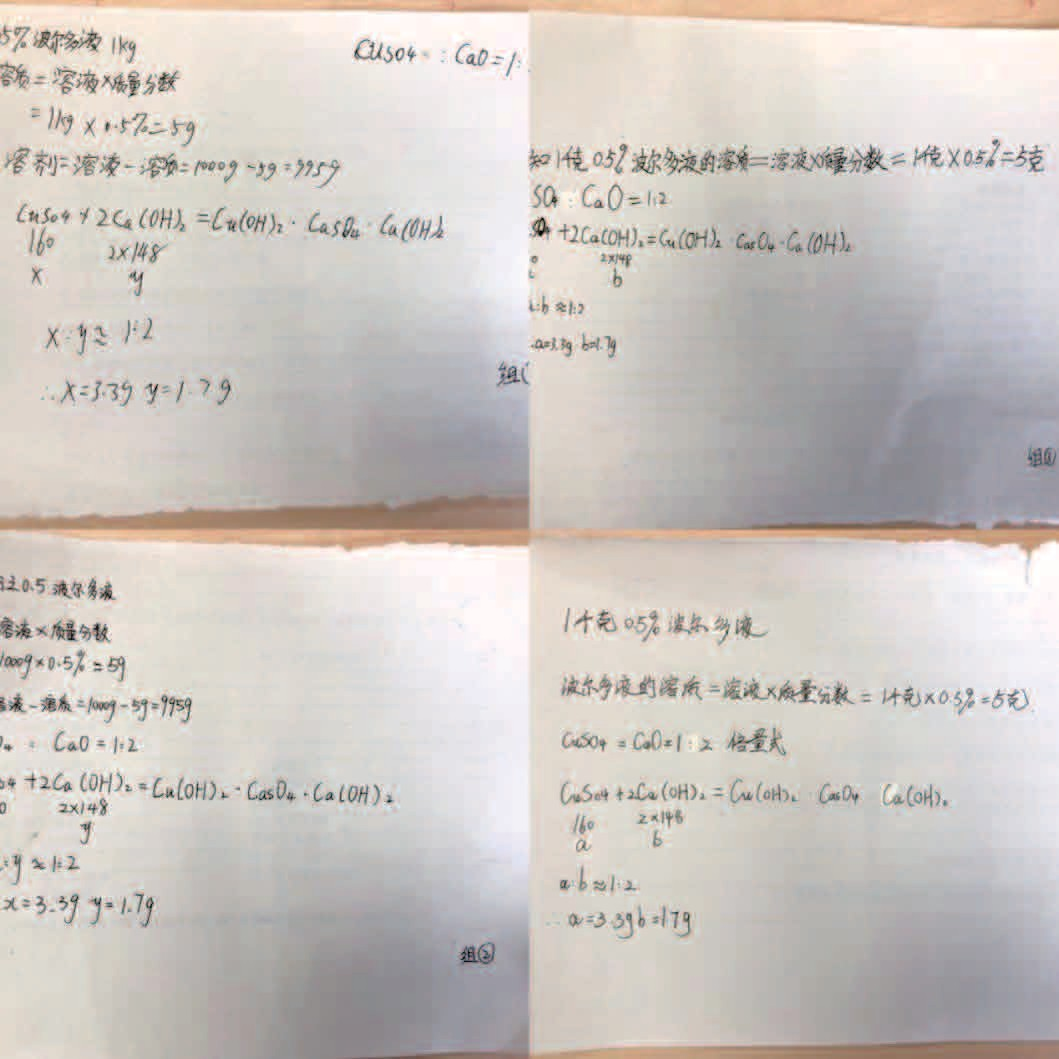 5% 波尔多液 1kg
CuSO4 : CaO=1:
溶质=溶液×质量分数
=1kg×0.5%=5g
溶剂=溶液-溶质=1000g-5g=995g
CuSO4+2Ca(OH)2=Cu(OH)2·CaSO4·Ca(OH)2
160 2×148
x y
x:y≈1:2
∴x=3.3g y=1.7g
组
知1千克0.5%波尔多液的溶质=溶液×质量分数=1千克×0.5%=5克
SO4:CaO=1:2
SO4+2Ca(OH)2=Cu(OH)2·CaSO4·Ca(OH)2
0 2×148
b
a:b≈1:2
∴a=3.3g b=1.7g
组③
0.5 波尔多液
溶液×质量分数
1000g×0.5%=5g
溶液-溶质=1000g-5g=995g
O4 = CaO=1:2
SO4+2Ca(OH)2=Cu(OH)2·CaSO4·Ca(OH)2
0 2×148
y
:y≈1:2
x=3.3g y=1.7g
组②
1千克0.5%波尔多液
波尔多液的溶质=溶液×质量分数=1千克×0.5%=5克
CuSO4=CaO=1:2 倍量式
CuSO4+2Ca(OH)2=Cu(OH)2·CaSO4 Ca(OH)2
160 2×148
a b
a:b≈1:2
∴a=3.3g b=1.7g